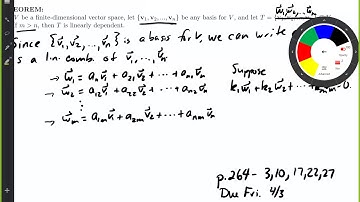 EOREM:
V be a finite-dimensional vector space, let {v₁, v₂, ..., vₙ} be any basis for V, and let T =
if m > n, then T is linearly dependent.
Since {v⃗₁, v⃗₂, ..., v⃗ₙ} is a basis for V, we can write
as a lin. comb. of v⃗₁, ..., v⃗ₙ
→ w⃗₁ = a₁₁v⃗₁ + a₂₁v⃗₂ + ... + aₙ₁v⃗ₙ
→ w⃗₂ = a₁₂v⃗₁ + a₂₂v⃗₂ + ... + aₙ₂v⃗ₙ
⋮
→ w⃗ₘ = a₁ₘv⃗₁ + a₂ₘv⃗₂ + ... + aₙₘv⃗ₙ
Suppose
k₁w⃗₁ + k₂w⃗₂ + ...
p.264- 3,10,17,22,27
Due Fri. 4/3